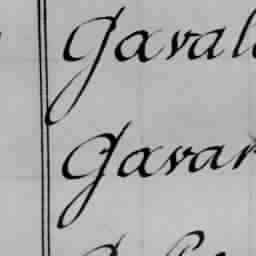 Gaval
Gavar